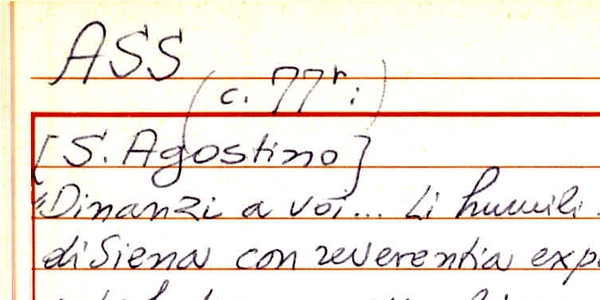 ASS
(c. 77r:)
[S. Agostino]
"Dinanzi a voi... Li humili
di Siena con reverentia exp